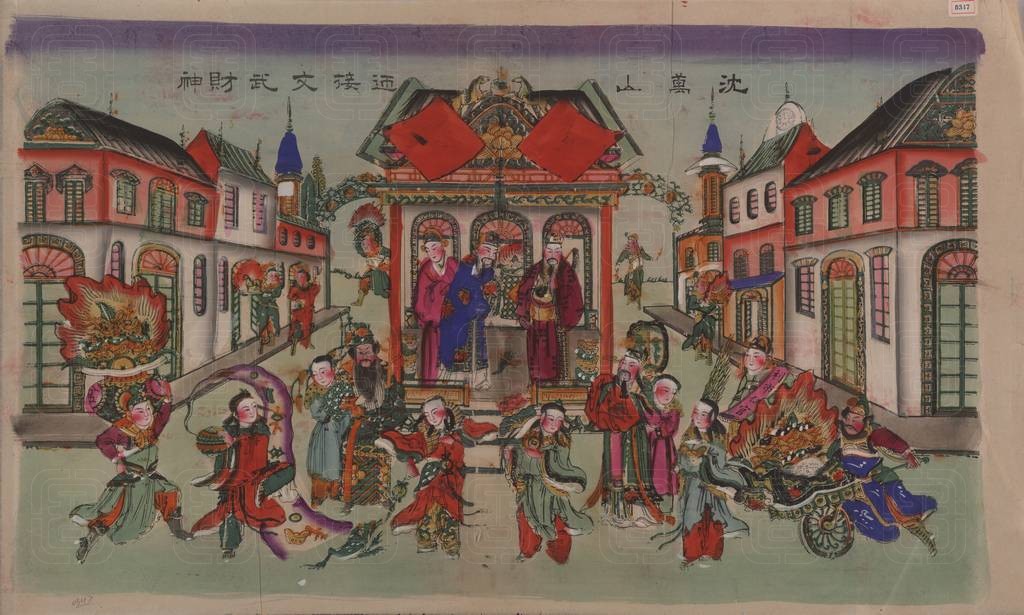 沈萬山迎接文武財神